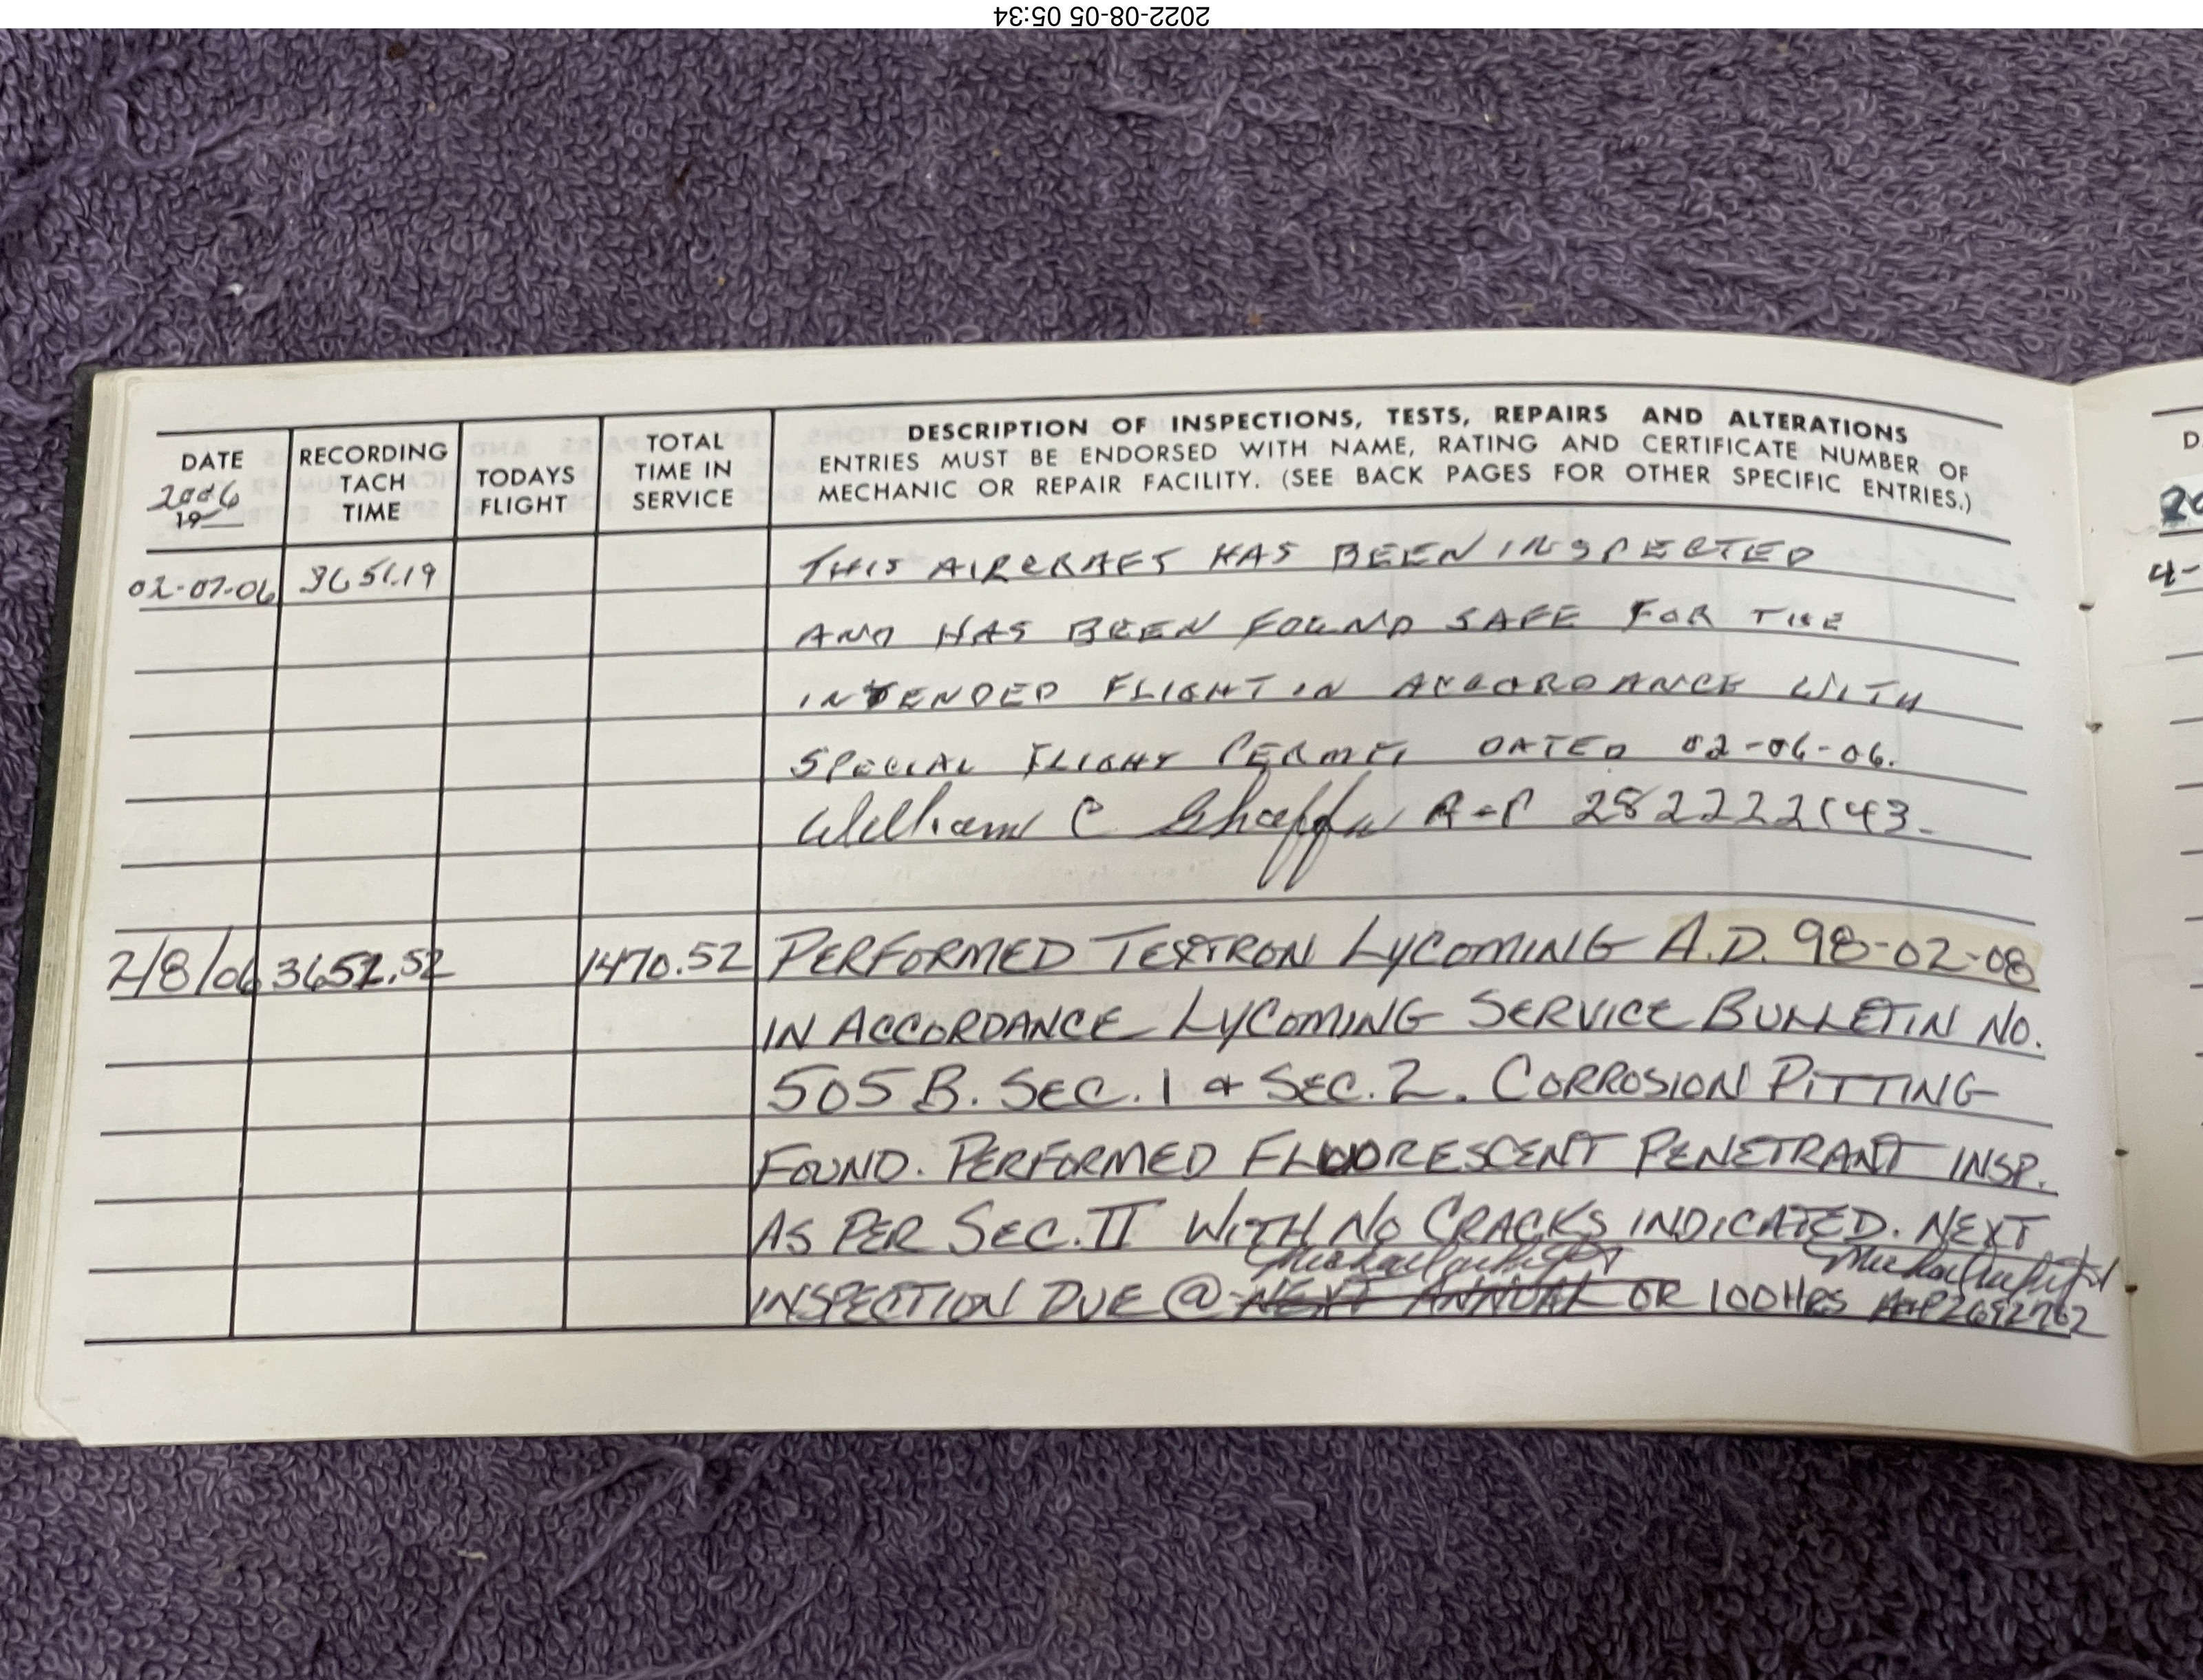 2022-08-05 05:34
DATE
2006
19
RECORDING
TACH
TIME
TODAYS
FLIGHT
TOTAL
TIME IN
SERVICE
DESCRIPTION OF INSPECTIONS, TESTS, REPAIRS AND ALTERATIONS
ENTRIES MUST BE ENDORSED WITH NAME, RATING AND CERTIFICATE NUMBER OF
MECHANIC OR REPAIR FACILITY. (SEE BACK PAGES FOR OTHER SPECIFIC ENTRIES.)
02-07-06 3651.19 THIS AIRCRAFT HAS BEEN INSPECTED
AND HAS BEEN FOUND SAFE FOR THE
INTENDED FLIGHT IN ACCORDANCE WITH
SPECIAL FLIGHT PERMIT DATED 02-06-06.
William C A+P 282222143
2/8/06 3652.52 1470.52 PERFORMED TEXTRON LYCOMING A.D. 98-02-08
IN ACCORDANCE LYCOMING SERVICE BULLETIN NO.
505 B. SEC. 1 & SEC. 2. CORROSION PITTING
FOUND. PERFORMED FLUORESCENT PENETRANT INSP.
AS PER SEC. II WITH NO CRACKS INDICATED. NEXT
INSPECTION DUE @ NEXT ANNUAL OR 100 HRS A+P 2692762